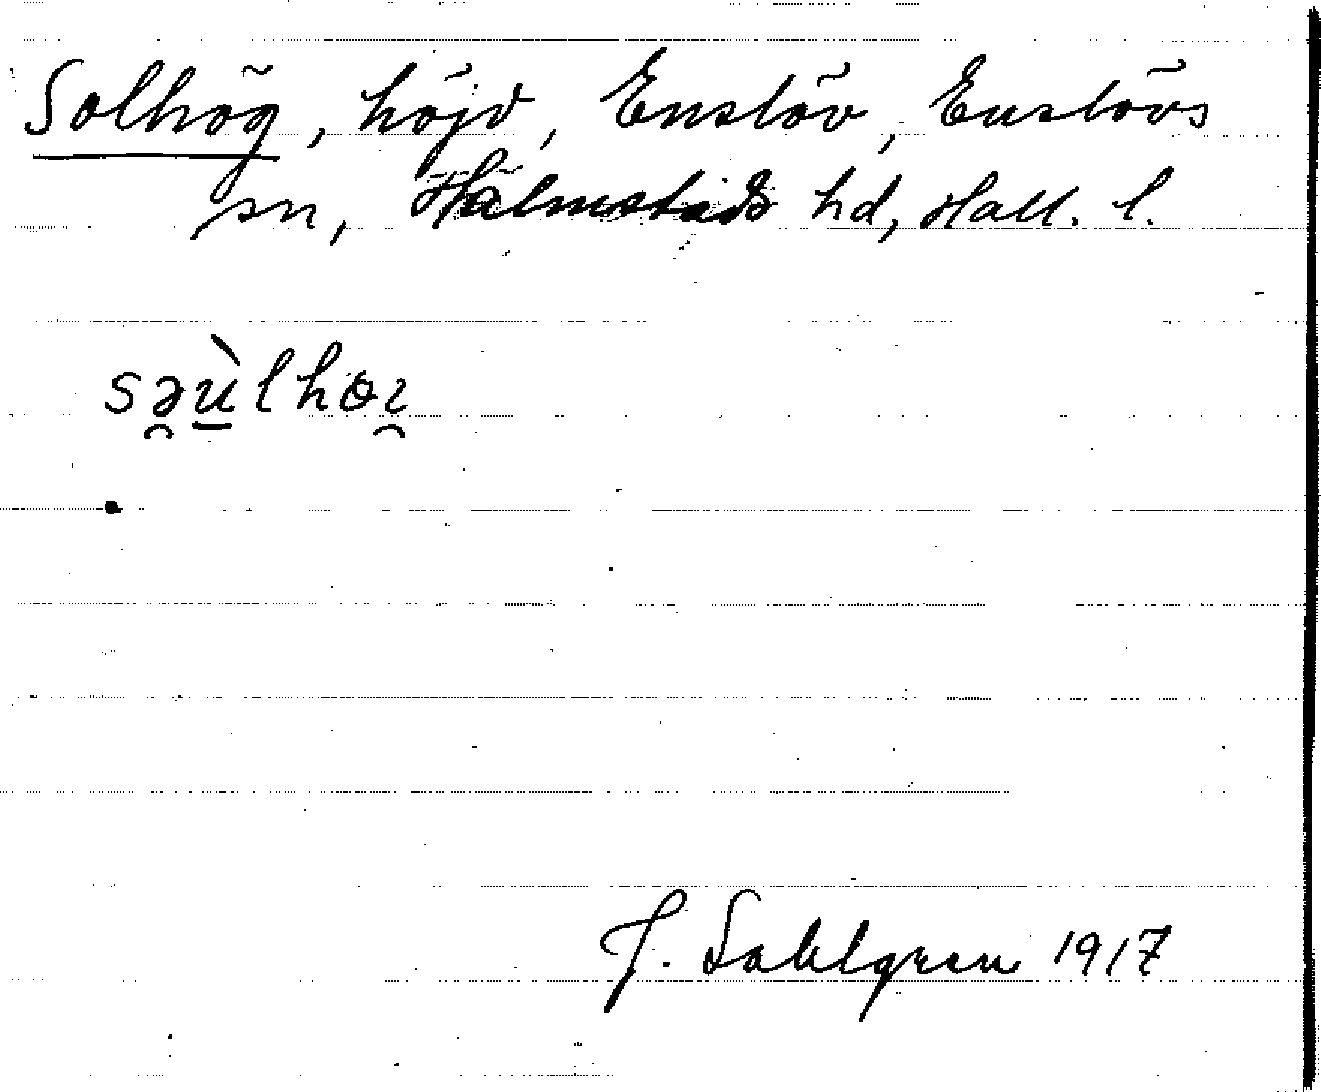 Solhög, höjd, Enslöv, Enslövs
sn, Halmstads hd, Hall. l.
sə̯ù̠lhɵɪ̯
J. Sahlgren 1917